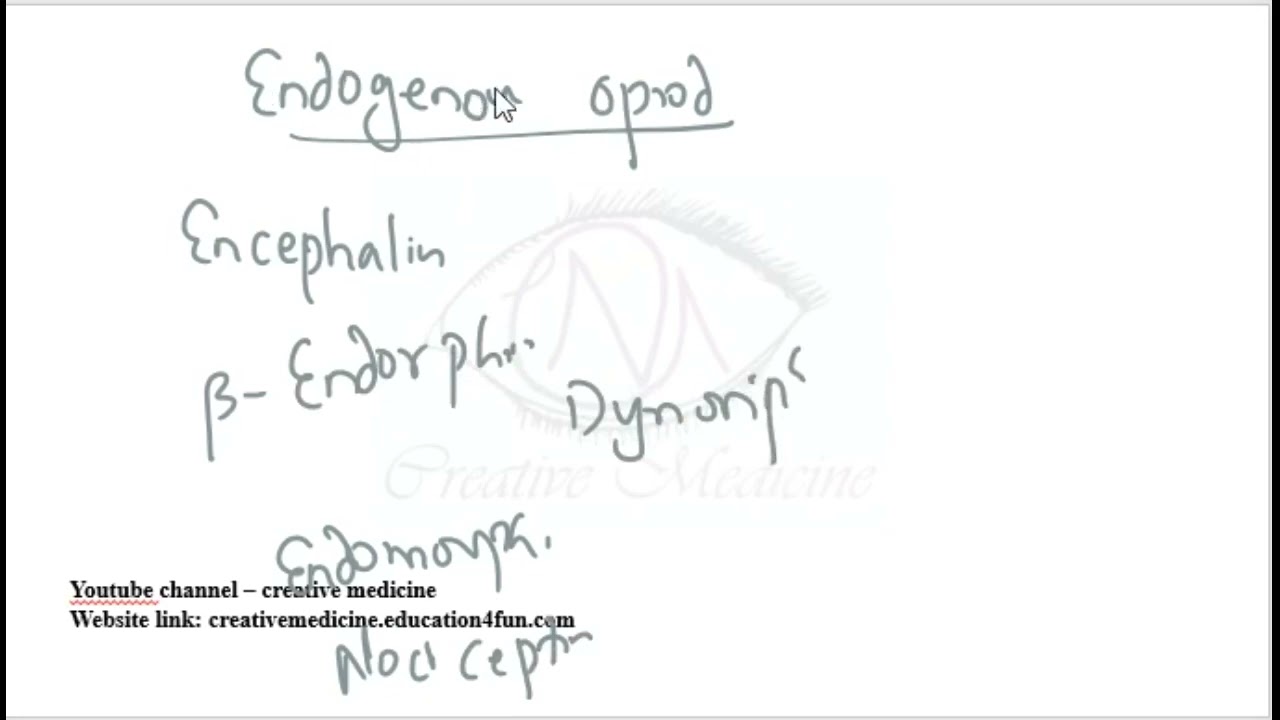 Endogenous opiod
Encephalin
β- Endorphin
Dynorip
Creative Medicine
Endomorph.
Youtube channel – creative medicine
Website link: creativemedicine.education4fun.com
Nociceptin